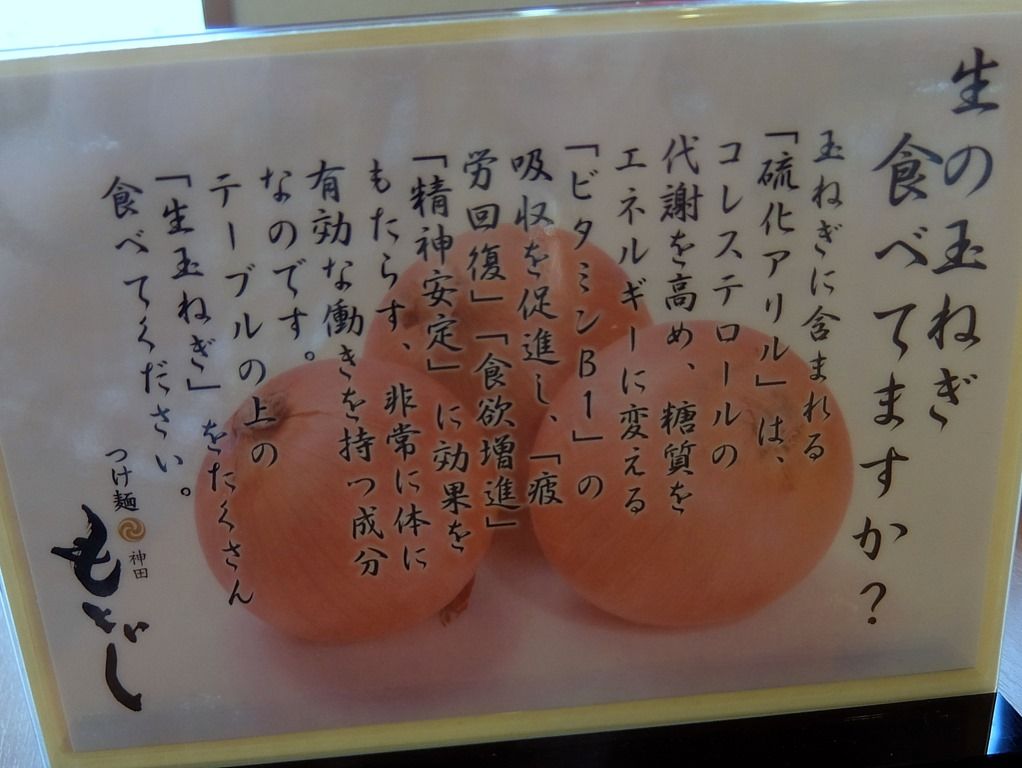 生の玉ねぎ
食べてますか？
玉ねぎに含まれる
「硫化アリル」は、
コレステロールの
代謝を高め、糖質を
エネルギーに変える
「ビタミンB1」の
吸収を促進し、「疲
労回復」「食欲増進」
「精神安定」に効果を
もたらす、非常に体に
有効な働きを持つ成分
なのです。
テーブルの上の
「生玉ねぎ」をたくさん
食べてください。
つけ麺
神田
もといし